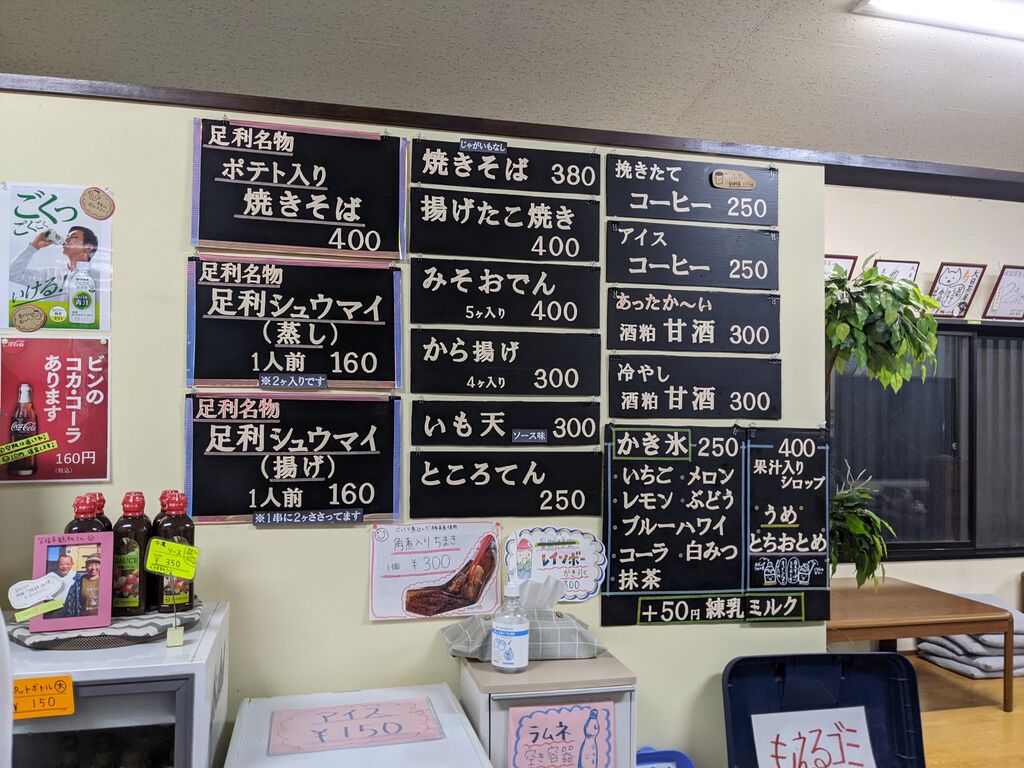 足利名物
ポテト入り
焼きそば
400
足利名物
足利シュウマイ
(蒸し)
1人前 160
※2ヶ入りです
足利名物
足利シュウマイ
(揚げ)
1人前 160
※1串に2ヶささってます
じゃがいもなし
焼きそば 380
揚げたこ焼き
400
みそおでん
5ヶ入り 400
から揚げ
4ヶ入り 300
いも天 ソース味 300
ところてん
250
挽きたて
コーヒー 250
アイス
コーヒー 250
あったか〜い
酒粕 甘酒 300
冷やし
酒粕 甘酒 300
かき氷 250
・いちご ・メロン
・レモン ・ぶどう
・ブルーハワイ
・コーラ ・白みつ
・抹茶
400
果汁入り
シロップ
うめ
とちおとめ
+50円 練乳ミルク
ごくっ
ごくっ
いける!
Coca-Cola
ビンの
コカ・コーラ
あります
160円
(税込)
角煮入りちまき
1個 ¥300
レインボー
かき氷
300
ソース
¥350
SAUCE
ペットボトル 大
¥150
アイス
¥150
ラムネ
空き容器
もえるゴミ